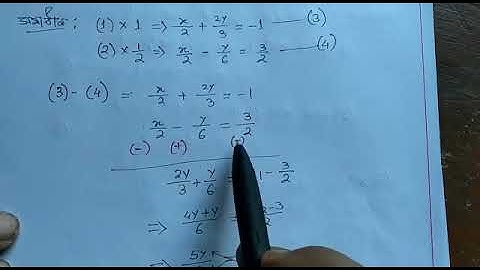 (1) × 1 ⇒ x/2 + 2y/3 = -1 —— (3)
(2) × 1/2 ⇒ x/2 - y/6 = 3/2 —— (4)
(3) - (4) = x/2 + 2y/3 = -1
x/2 - y/6 = 3/2
(-) (+)
2y/3 + y/6 = 1 - 3/2
⇒ (4y+y)/6 = -3/2
⇒ 5y